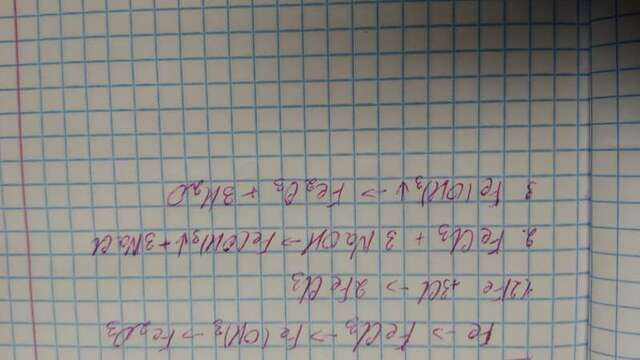 Fe → FeCl3 → Fe(OH)3 → Fe2O3
1 2Fe +3Cl → 2FeCl3
2. FeCl3 + 3 NaOH → Fe(OH)3↓ + 3NaCl
3 Fe(OH)3↓ → Fe2O3 + 3H2O